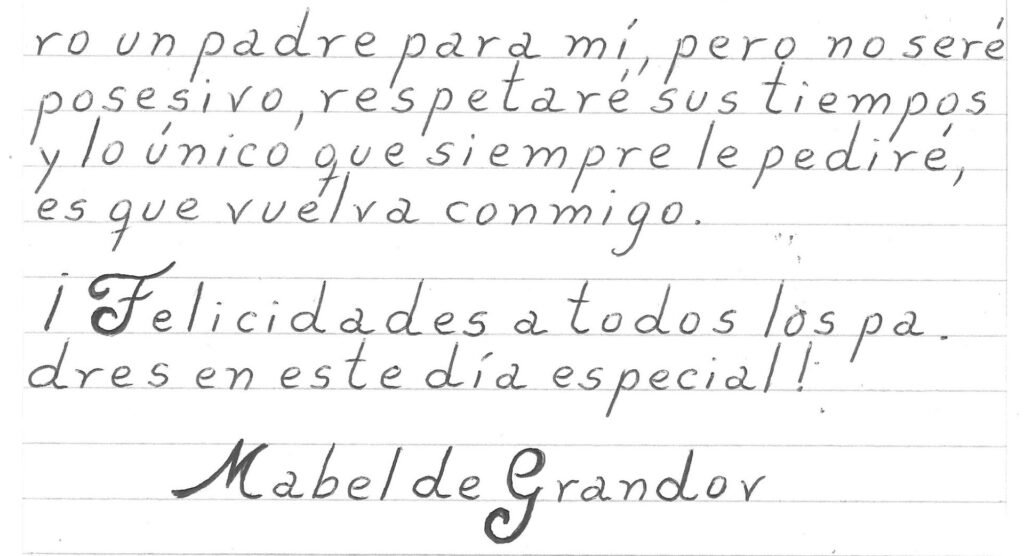 ro un padre para mí, pero no seré
posesivo, respetaré sus tiempos
y lo único que siempre le pediré,
es que vuelva conmigo.
¡Felicidades a todos los pa-
dres en este día especial!
Mabel de Grandov